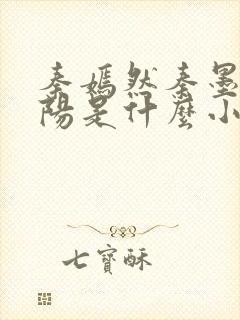 秦嫣然秦墨
陽是什麼小
七寶酥